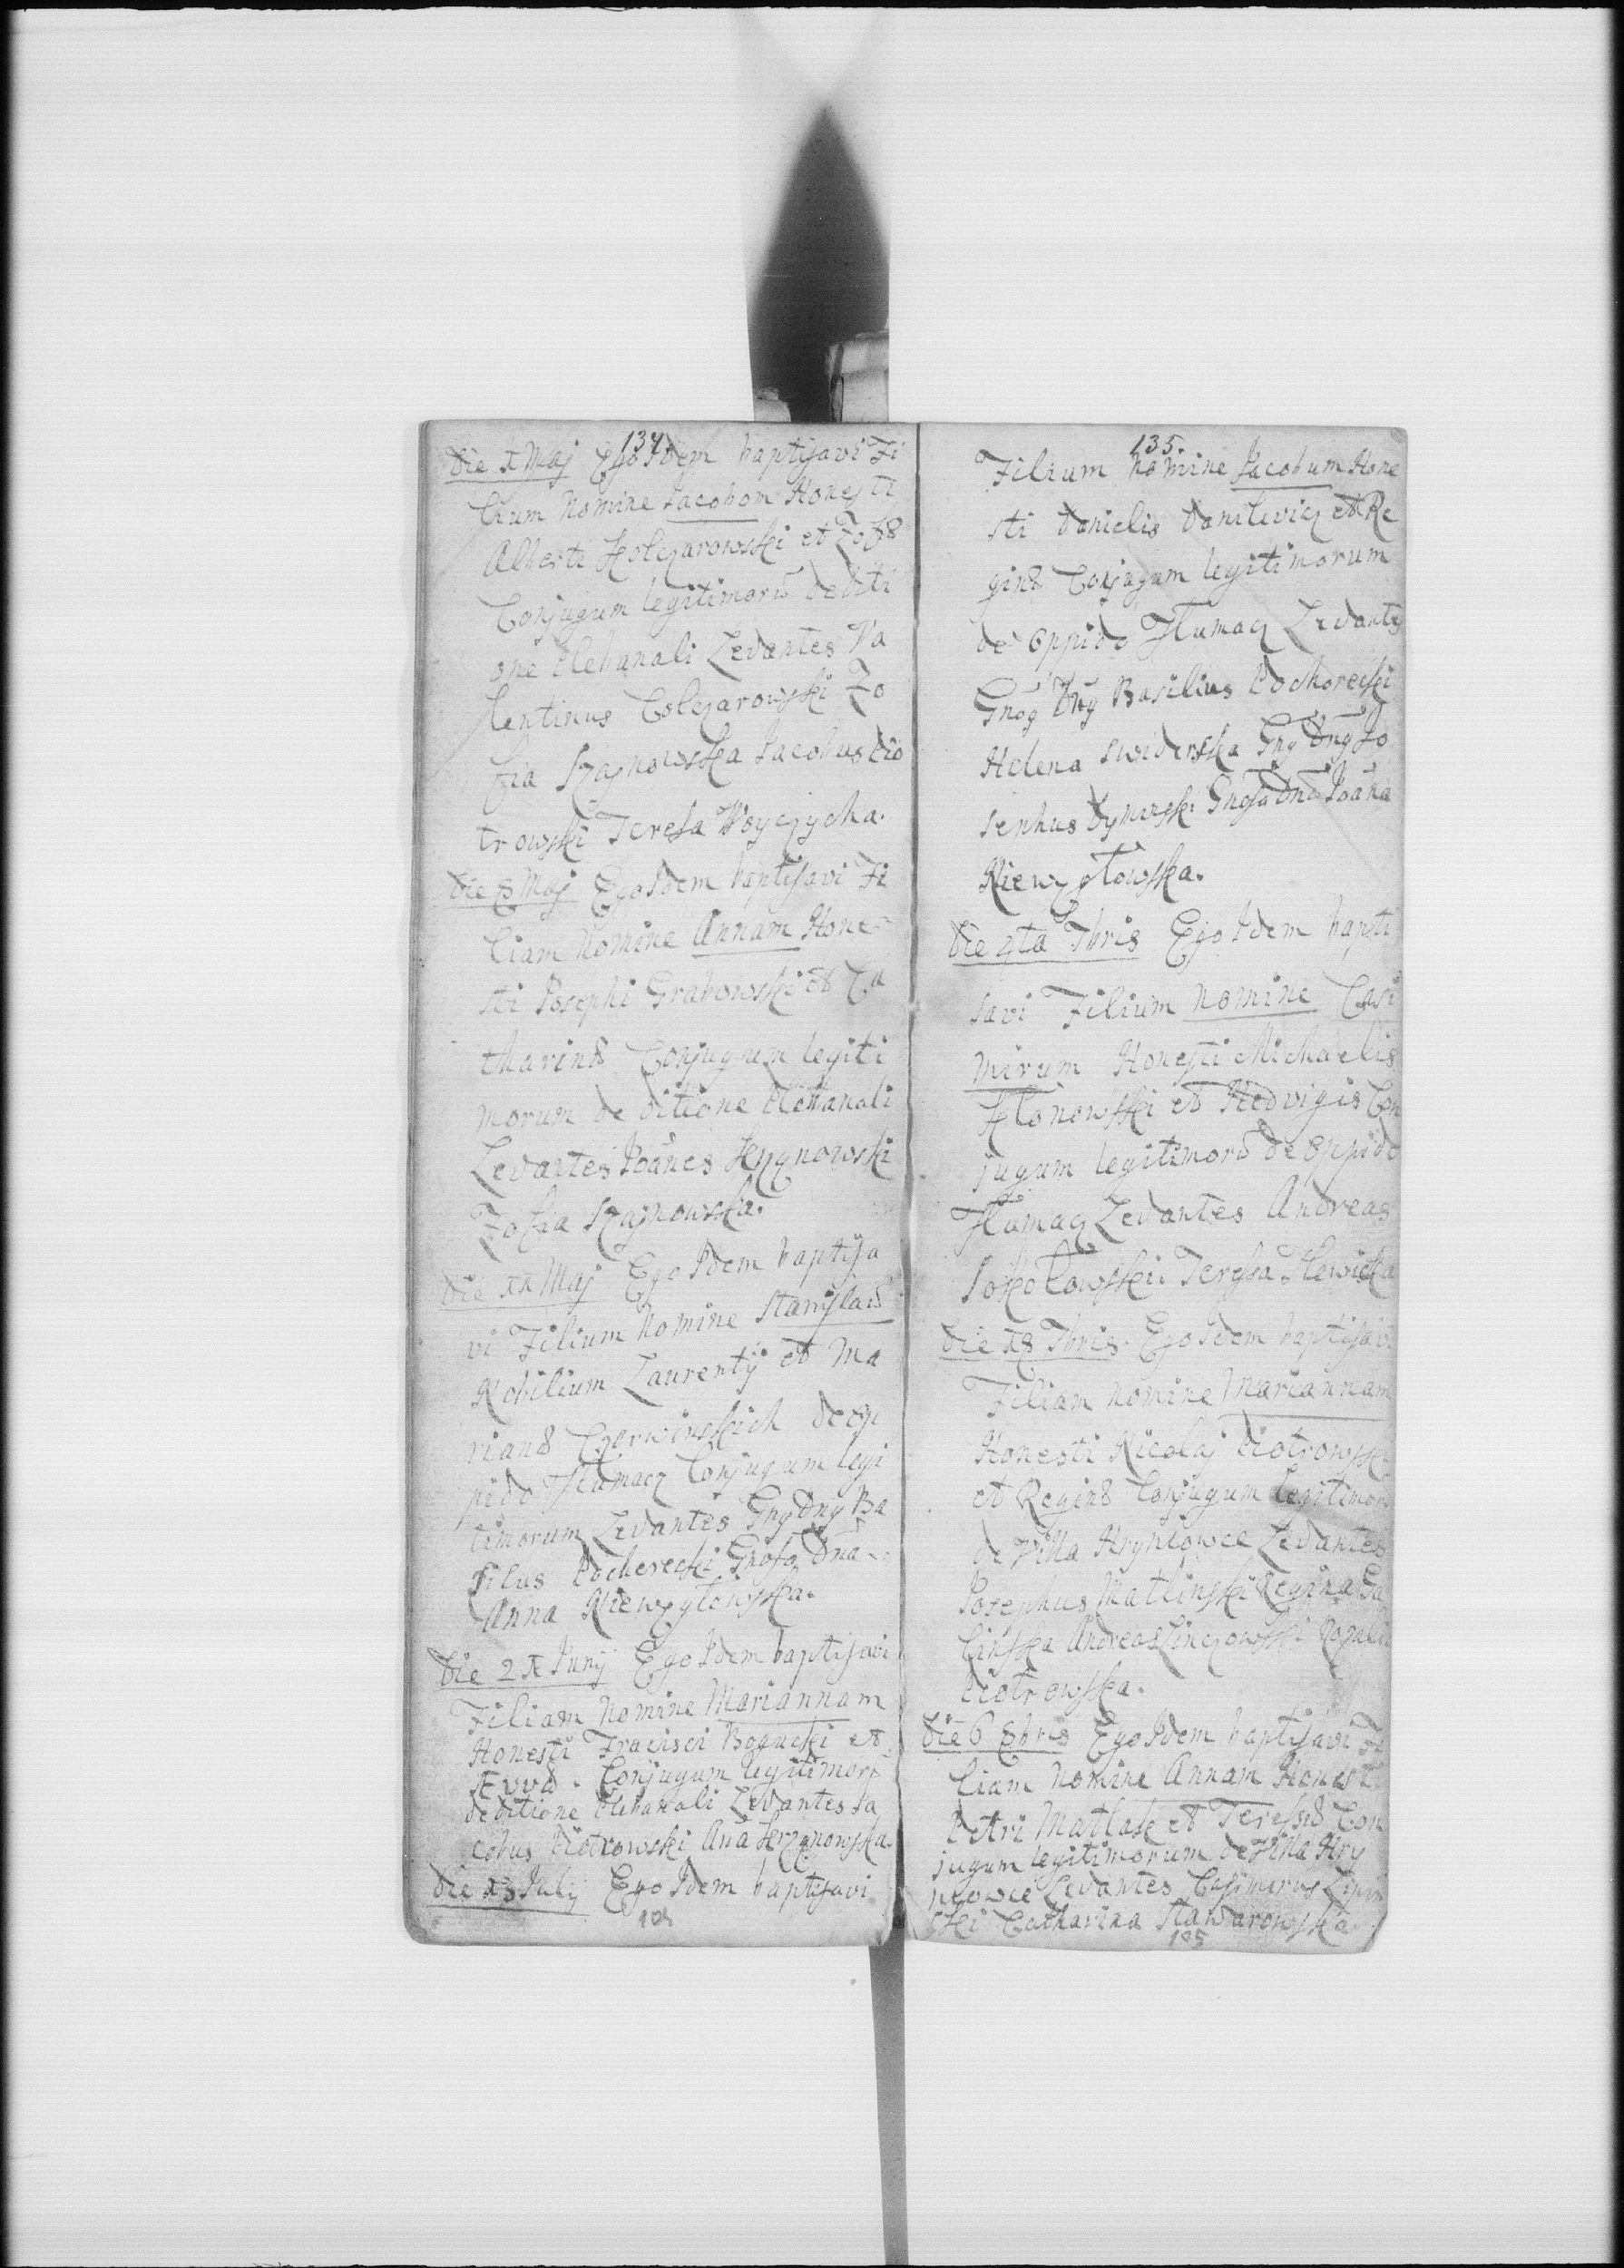 134
Die x Maj Ego Idem baptisavi Fi
lium Nomine Jacobom Honesti
Alberti Kolczarowski et Zofiæ
Conjugum legitimorũ de diti
one Plebanali Levantes Va
lentinus Colczarowski Zo
fia Szajnowska Jacobus Pio
trowski Teresa Woyczycha.
Die 8 Maj Ego Idem baptisavi Fi
liam Nomine Annam Hone-
sti Josephi Grabowski et Ca
tharinæ Conjugum legiti
morum de ditione Plebanali
Levantes Joãnes
Zofia Szajnowska.
Die xx Maj Ego Idem baptisa
vi Filium Nomine Stanislaũ
Nobilium Laurentij et Ma
rianæ Czerwinskich de op
pido Tłumacz Conjugum legi
timorum Levantes Gnỹ Dnỹ Ba
silus Pochorecki Gnosa Dnã
Anna Niewzytowska.
Die 2 x Junij Ego Idem baptisavi
Filiam Nomine Mariannam
Honesti Fracisci Bogucki et
Ævvæ Conjugum legitimor
de ditione Plebanali Levantes Ja
cobus Piotrowski Anã
Die x8 Julij Ego Idem baptisavi
104
135.
Filium nomine Jacobum Hone
sti Danielis Danilevicz et Re
ginæ Conjugum legitimorum
de Oppido Tłumacz Levantes
Gnoȝ Dnỹ Basilius Pochorecki
Helena Swiderska Gnỹ Dnỹ Jo
sephus Dyminski Gnosa Dnã Joãna
Niewzytowska.
Die 4ta 7bris Ego Idem bapti
savi Filium Nomine Casi
mirum Honesti Michaelis
Klonowski et Hedvigis Con
jugum legitimorũ de Oppido
Tłumacz Levantes Andreas
Sokołowski Teresa
Die x8 7bris Ego Idem baptisavi
Filiam nomine Mariannam
Honesti Nicolaj Piotrowski
et Reginæ Conjugum legitimorũ
de Villa Hryniowce Levantes
Josephus Matlinski Regina Ga
linska Andreas Rozalia
Piotrowska.
Die 6 8bris Ego Idem baptisavi Fi
liam Nomine Annam Honesti
Petri Matlak et Teressæ Con
jugum legitimorum de Villa Hry
niowce Levantes Casimirus Lipin
ski Catharina Stawarowska
105